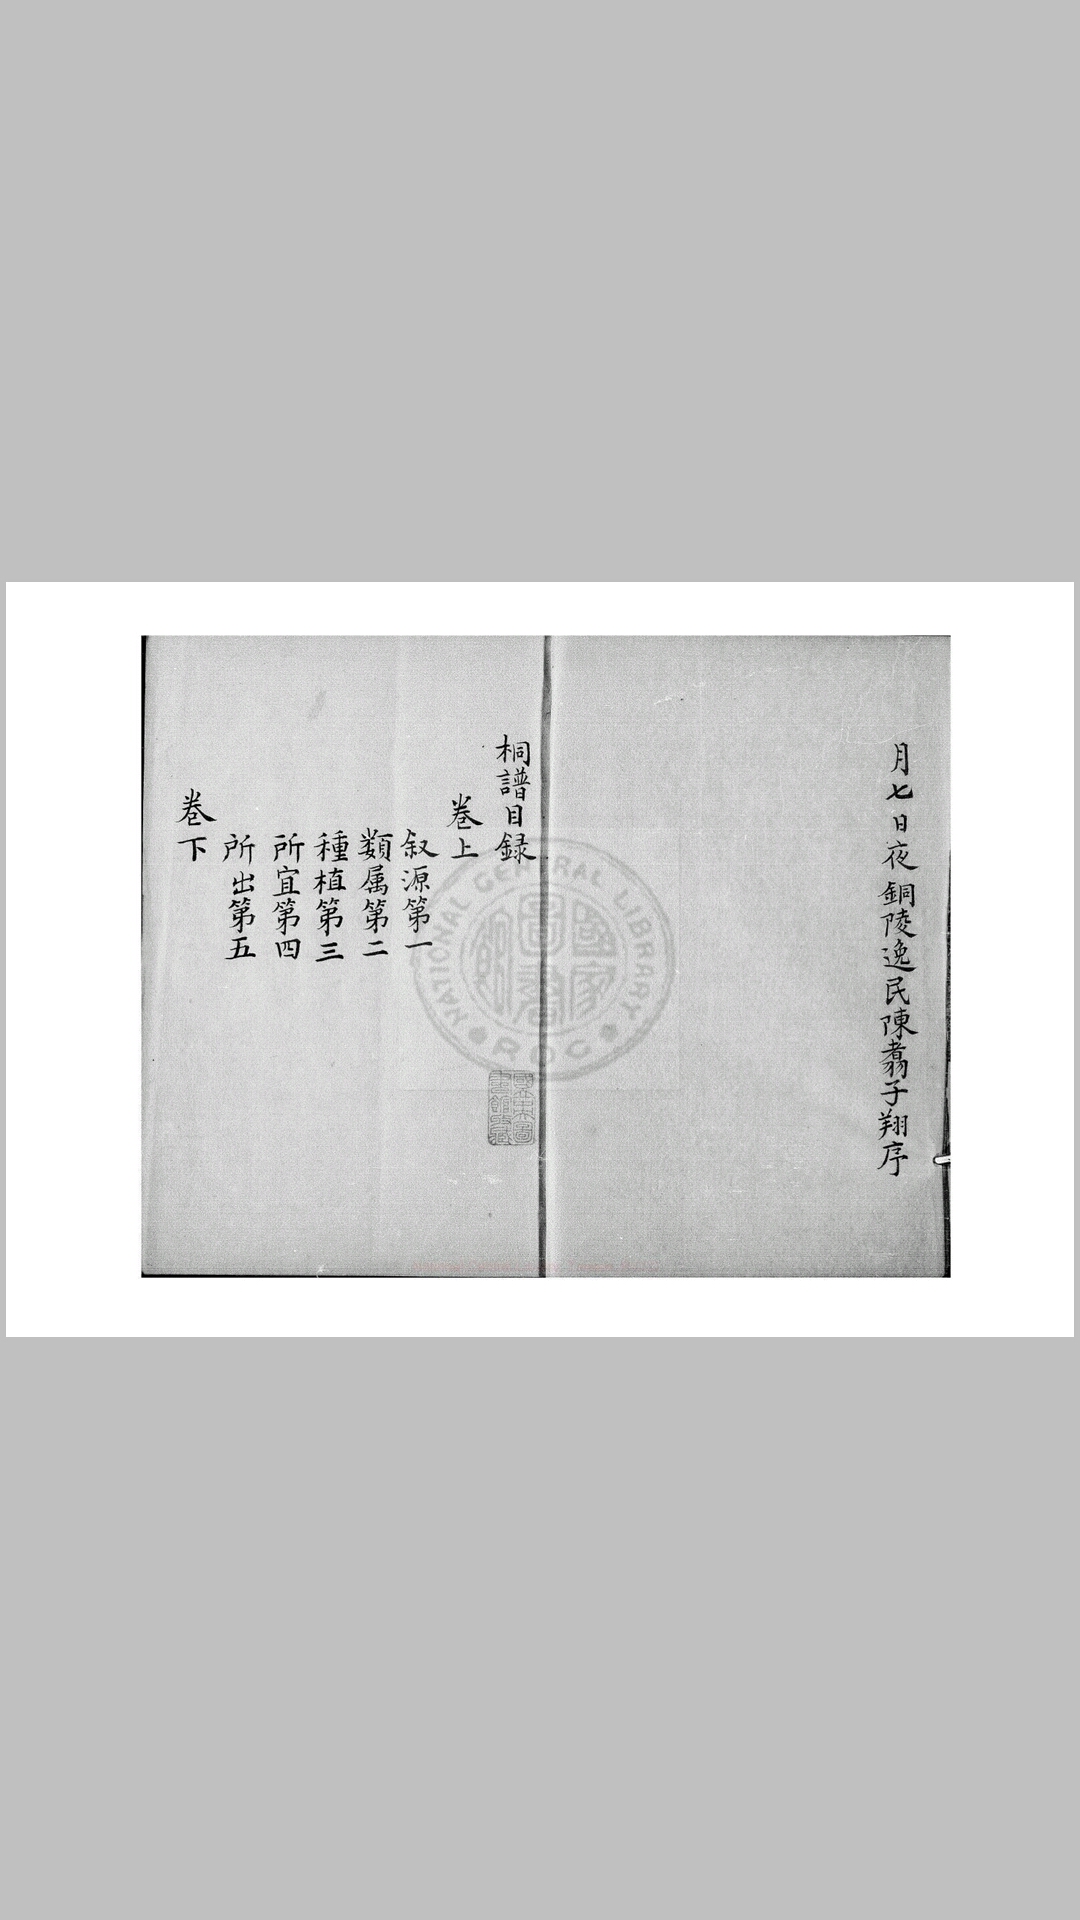 月七日夜銅陵逸民陳翥子翔序
桐譜目録
卷上
叙源第一
類属第二
種植第三
所宜第四
所出第五
卷下
NATIONAL CENTRAL LIBRARY
國家圖書館
ROC
國立中央圖書館藏